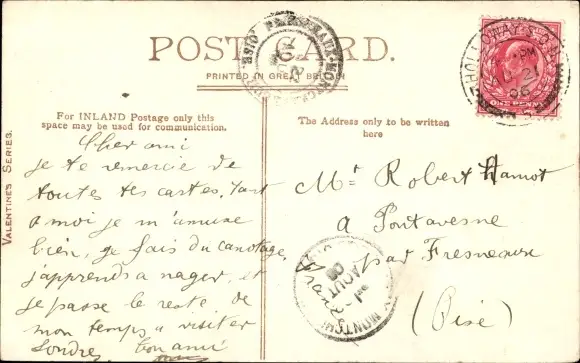 POST CARD.
PRINTED IN GREAT BRITAIN
For INLAND Postage only this
space may be used for communication.
The Address only to be written
here
VALENTINE'S SERIES.
Cher ami
je te remercie de
toutes tes cartes, tant
a moi je m'amuse
bien, je fais du canotage,
j'apprends a nager, et
je passe le reste de
mon temps a visiter
Londre, ton ami
Mr Robert Hamot
a Pontavesne
par Fresneaux
(Oise)
HOLLOWAY S.O.
21
06
ONE PENNY
AOUT